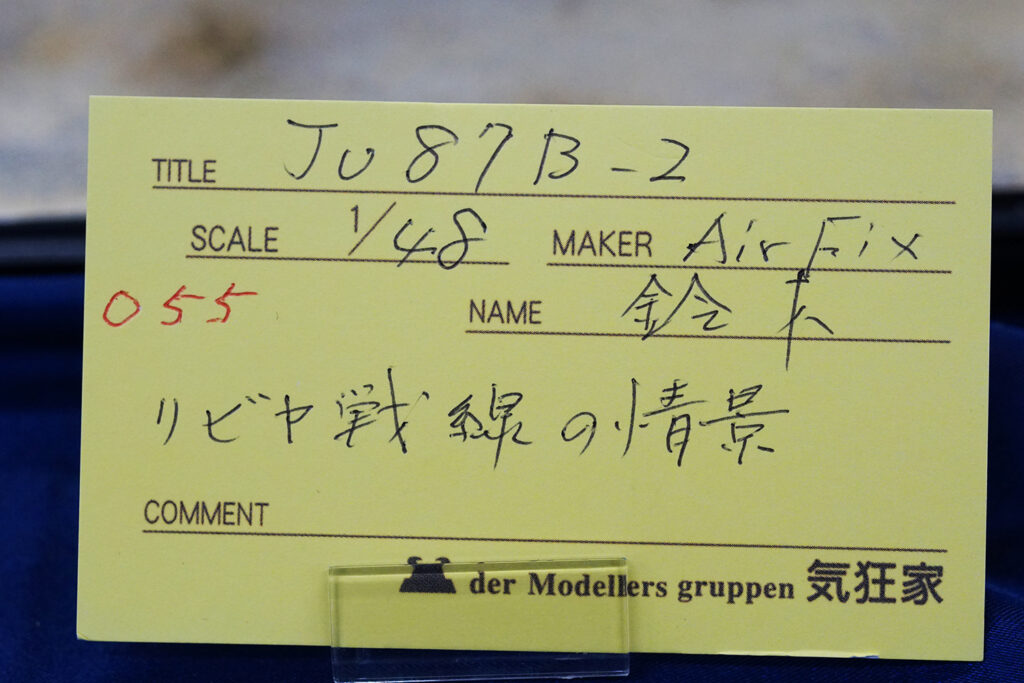 TITLE Ju 87 B-2
SCALE 1/48 MAKER AirFix
055 NAME 鈴木
リビヤ戦線の情景
COMMENT
der Modellers gruppen 気狂家